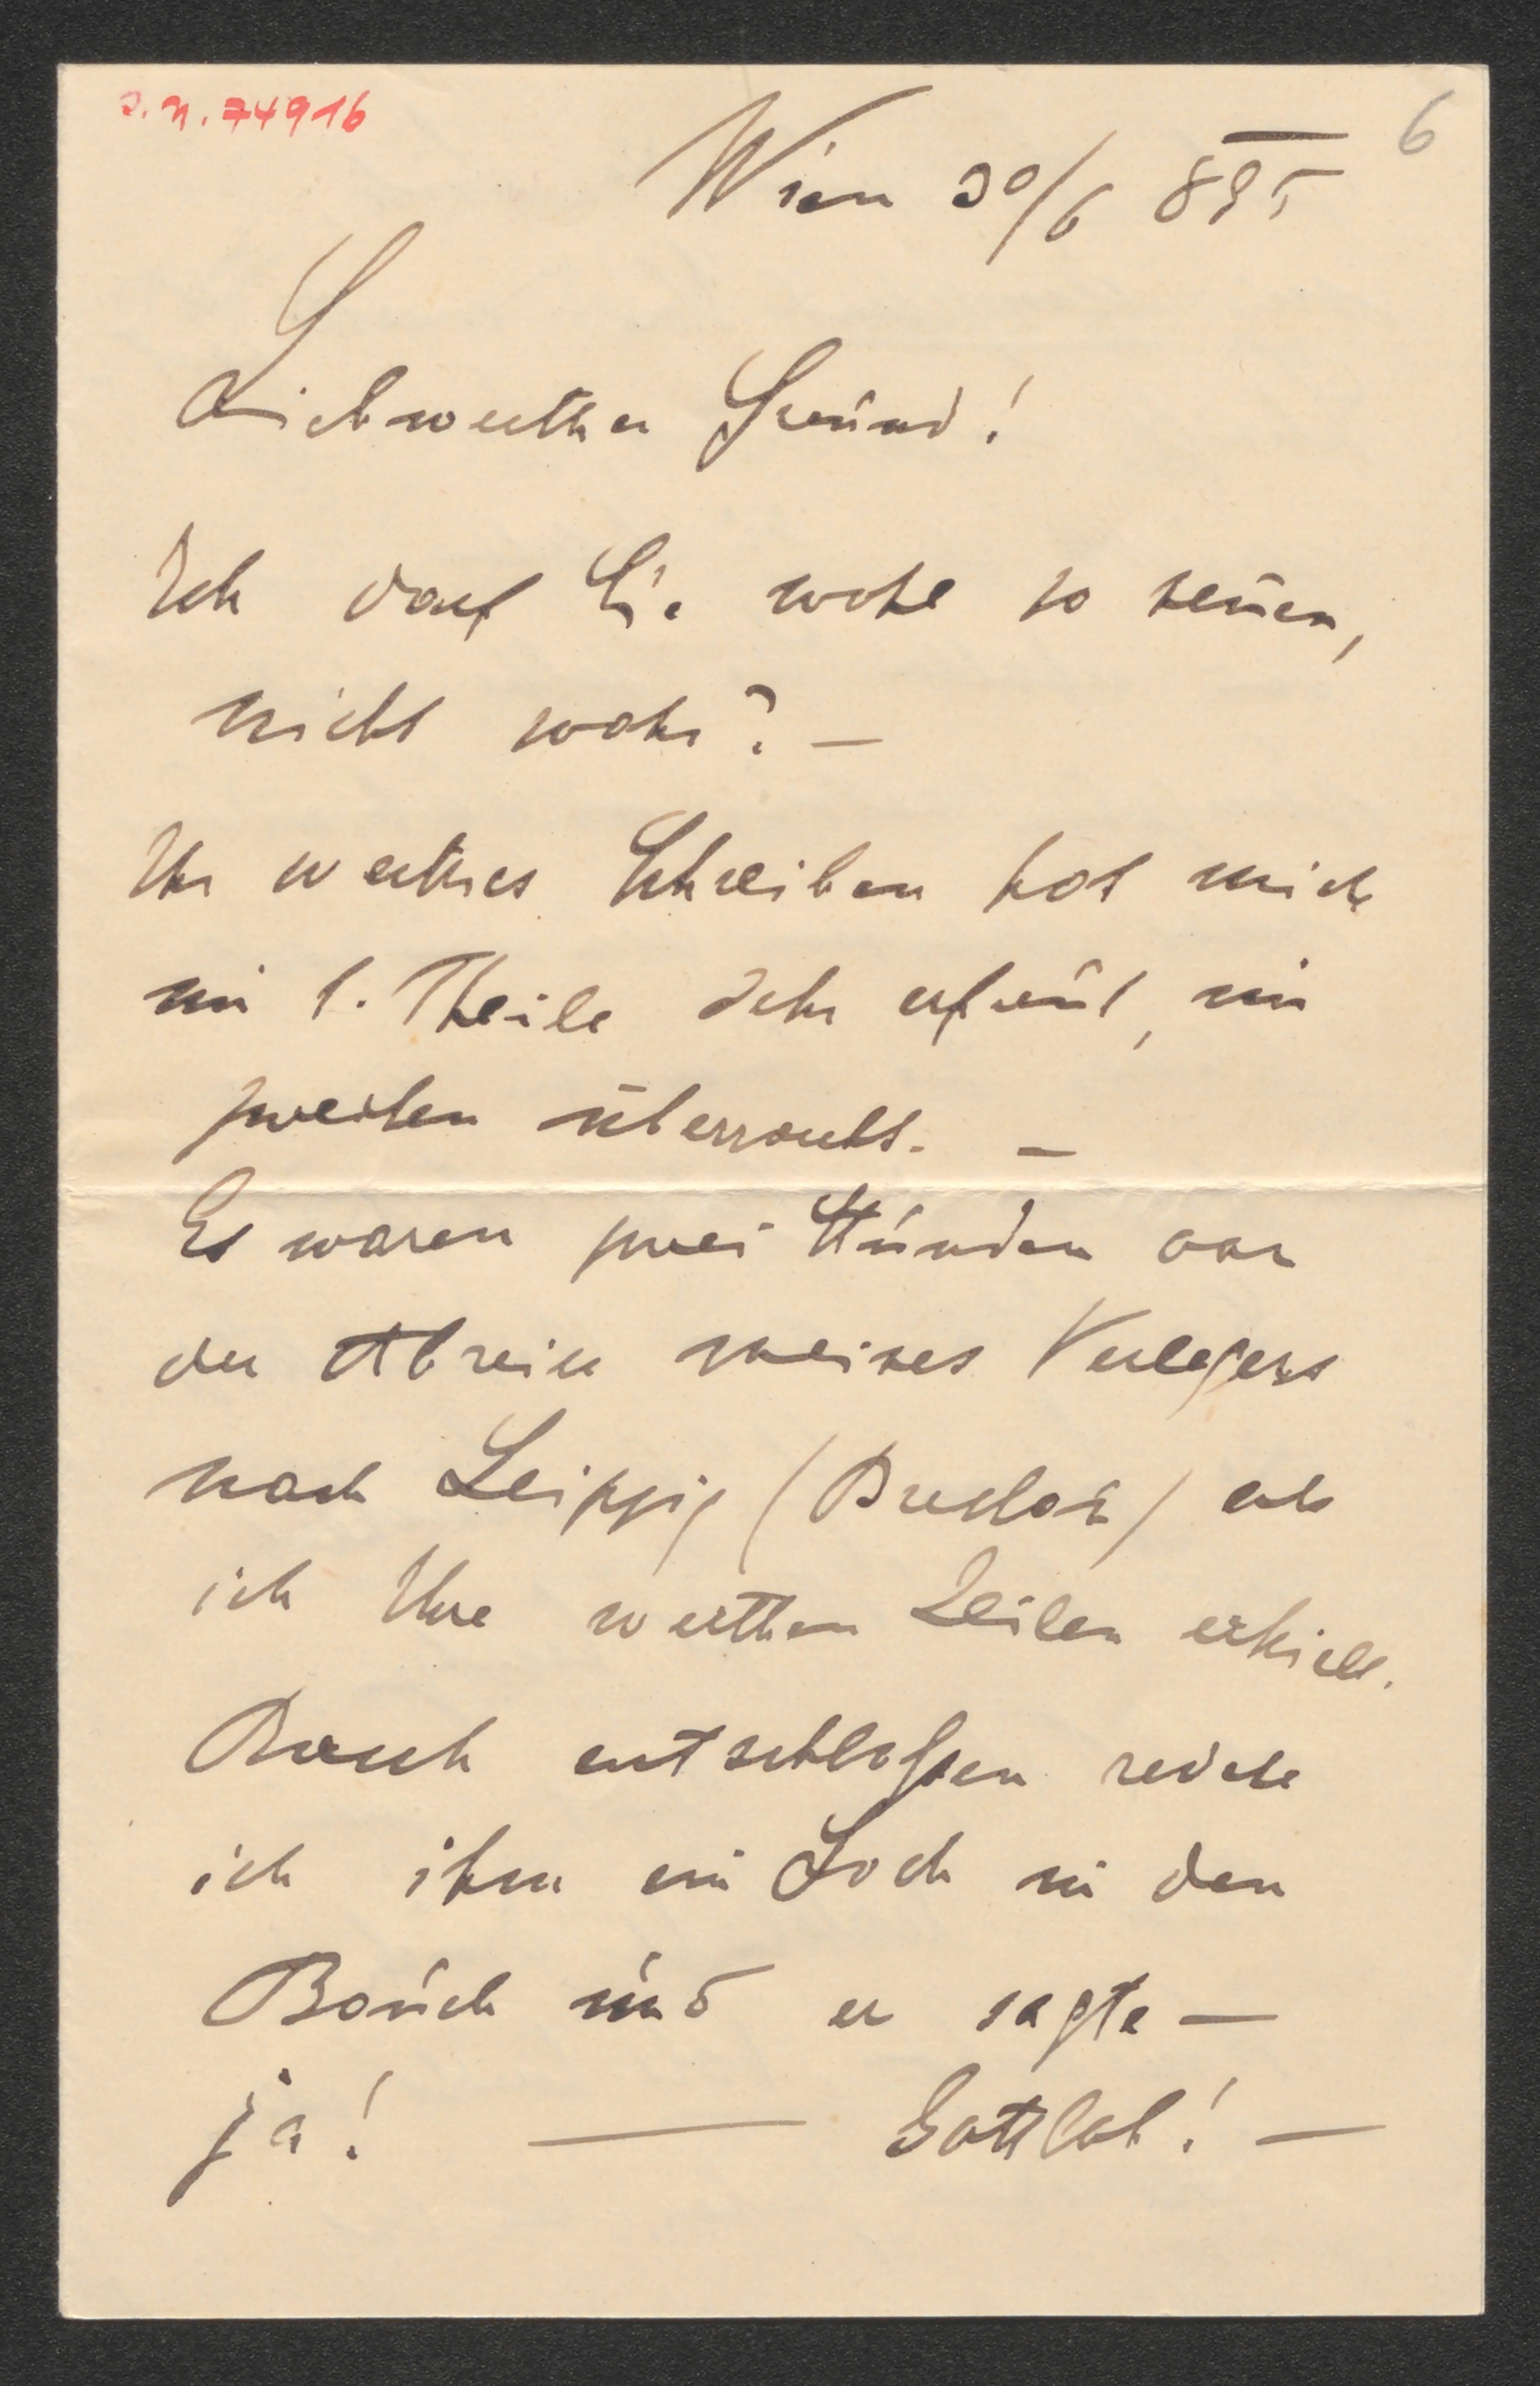 J. N. 74916
6
Wien 30/6 895
Liebwerther Freund!
Ich darf Sie wohl so nennen,
nicht wahr? —
Ihr werthes Schreiben hat mich
im 1. Theile sehr erfreut, im
zweiten überrascht. —
Es waren zwei Stunden vor
der Abreise meines Verlegers
nach Leipzig (Breslau) als
ich Ihre werthen Zeilen erhielt.
Rasch entschloßen redete
ich ihm ein Loch in den
Bauch und er sagte —
ja! — Gottlob! —